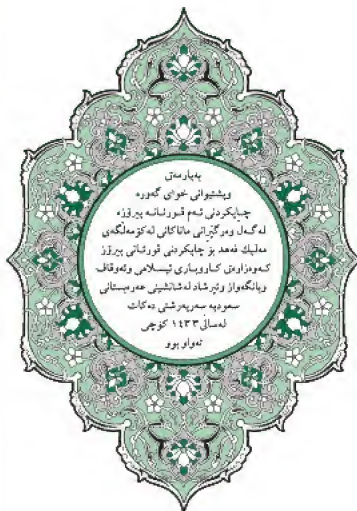 بەیارمەتی
وپشتیوانی خوای گەورە
چاپکردنی ئەم قورئانە پیرۆزە
لەگەڵ وەرگێڕانی ماناکانی لەکۆمەڵگەی
مەلیك فەهد بۆ چاپکردنی قورئانی پیرۆز
کەوەزارەتی کاروباری ئیسلامی وئەوقاف
وبانگەواز وئیرشاد لەشانشینی عەرەبستانی
سعودیە سەرپەرشتی دەکات
لەساڵی ١٤٣٣ کۆچی
تەواو بوو